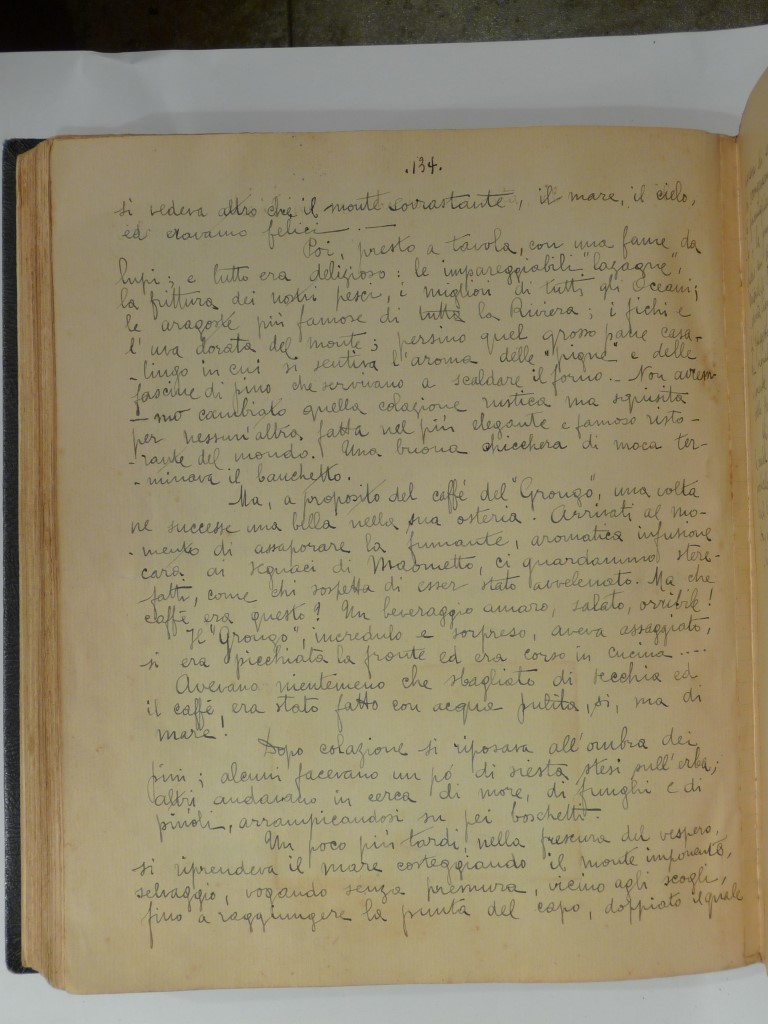 .134.
si vedeva altro che il monte sovrastante, il mare, il cielo,
ed eravamo felici. —
Poi, presto a tavola, con una fame da
lupi; e tutto era delizioso: le impareggiabili "lasagne",
la frittura dei nostri pesci, i migliori di tutti gli Oceani;
le aragoste più famose di tutta la Riviera; i fichi e
l'uva dorata del monte; persino quel grosso pane casa-
-lingo in cui si sentiva l'aroma delle "pigne" e delle
fascine di pino che servivano a scaldare il forno. — Non avrem-
-mo cambiato quella colazione rustica ma squisita
per nessun'altra fatta nel più elegante e famoso risto-
-rante del mondo. Una buona chicchera di moca ter-
-minava il banchetto.
Ma, a proposito del caffé del "Grongo", una volta
ne successe una bella nella sua osteria. Arrivati al mo-
-mento di assaporare la fumante, aromatica infusione
cara ai seguaci di Maometto, ci guardammo stere-
fatti, come chi sospetta di esser stato avvelenato. Ma che
caffé era questo? Un beveraggio amaro, salato, orribile!
Il "Grongo", incredulo e sorpreso, aveva assaggiato,
si era picchiata la fronte ed era corso in cucina ....
Avevano nientemeno che sbagliato di secchia ed
il caffé, era stato fatto con acqua pulita, si, ma di
mare!
Dopo colazione si riposava all'ombra dei
pini; alcuni facevano un pó di siesta stesi sull'erba;
altri andavano in cerca di more, di funghi e di
pinoli, arrampicandosi su pei boschetti.
Un poco più tardi, nella frescura del vespero,
si riprendeva il mare costeggiando il monte imponente,
selvaggio, vogando senza premura, vicino agli scogli,
fino a raggiungere la punta del capo, doppiato il quale